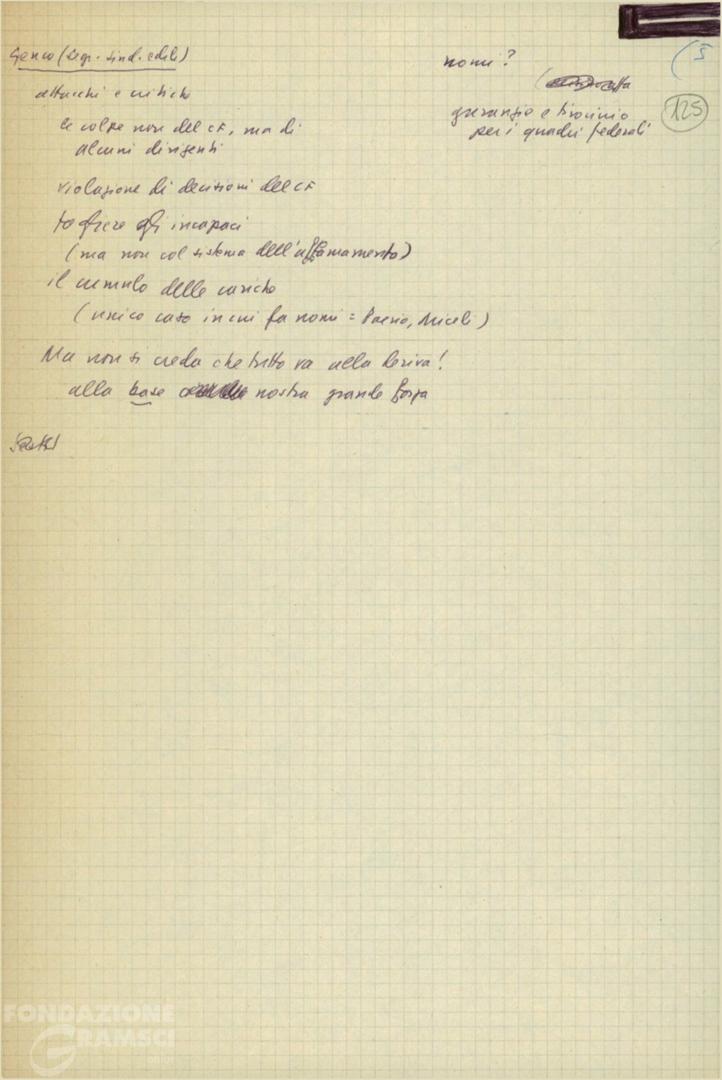 Genco (Segr. Sind. edili)
attacchi e critiche
le colpe non del CF, ma di
alcuni dirigenti
violazione di decisioni del CF
togliere gli incapaci
(ma non col sistema dell'affamamento)
il cumulo delle cariche
(unico caso in cui fa nomi = Miceli)
Ma non si creda che tutto va alla deriva!
alla base nostra grande forza
nomi?
garanzie e tirocinio
per i quadri federali
5
125
FONDAZIONE
GRAMSCI